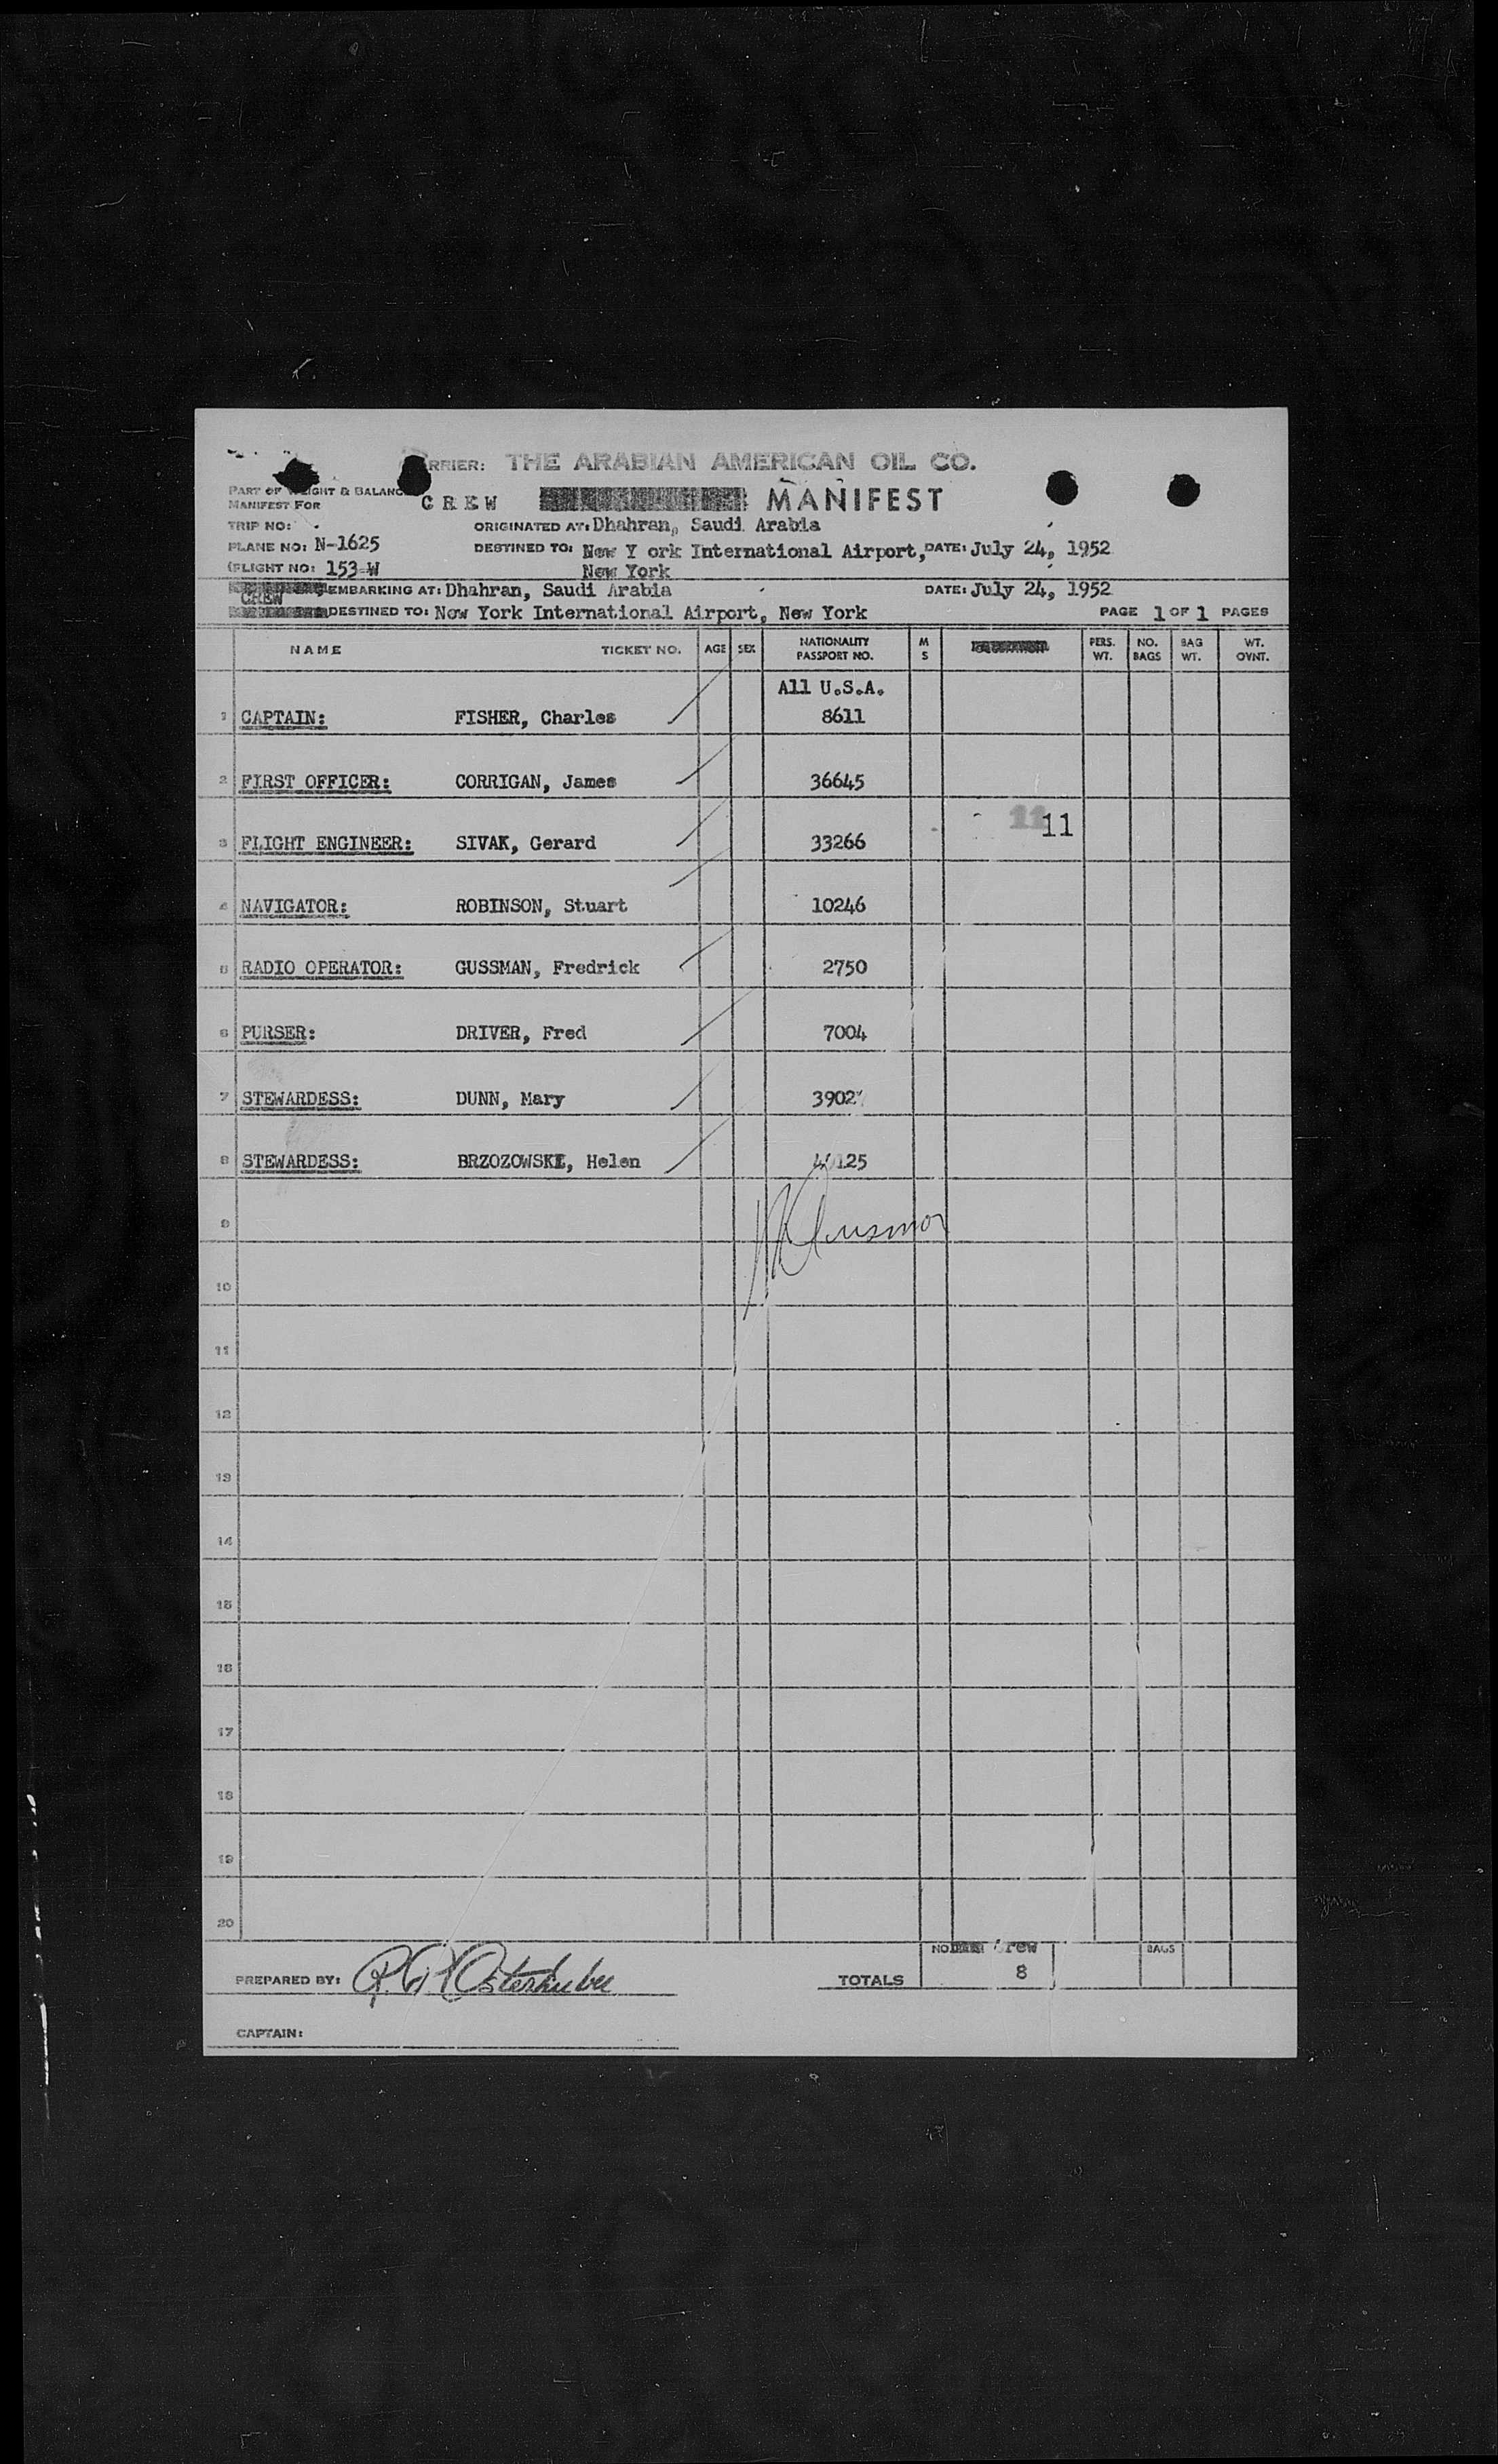 RRIER: THE ARABIAN AMERICAN OIL CO.
PART OF WEIGHT & BALANCE
MANIFEST FOR
CREW MANIFEST
TRIP NO: ORIGINATED AT: Dhahran, Saudi Arabia
PLANE NO: N-1625 DESTINED TO: New Y ork International Airport, DATE: July 24, 1952
(FLIGHT NO: 153-W New York
CREW EMBARKING AT: Dhahran, Saudi Arabia DATE: July 24, 1952
DESTINED TO: New York International Airport, New York PAGE 1 OF 1 PAGES
NAME TICKET NO. AGE SEX NATIONALITY PASSPORT NO. M S PERS. WT. NO. BAGS BAG WT. WT. OVNT.
All U.S.A.
1 CAPTAIN: FISHER, Charles 8611
2 FIRST OFFICER: CORRIGAN, James 36645
11 11
3 FLIGHT ENGINEER: SIVAK, Gerard 33266
4 NAVIGATOR: ROBINSON, Stuart 10246
5 RADIO OPERATOR: GUSSMAN, Fredrick 2750
6 PURSER: DRIVER, Fred 7004
7 STEWARDESS: DUNN, Mary
8 STEWARDESS: BRZOZOWSKI, Helen
9
10
11
12
13
14
15
16
17
18
19
20
NO rew BAGS
PREPARED BY: TOTALS 8
CAPTAIN: